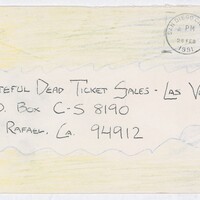 SAN DIEGO
PM
1991
TEFUL DEAD TICKET SALES - LAS V
O. BOX C-S 8190
RAFAEL, Ca. 94912